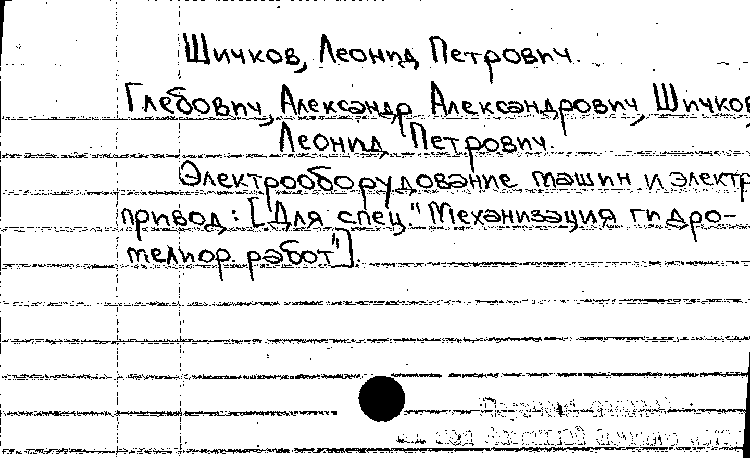 Шичков, Леонид Петрович.
Глебович, Александр Александрович, Шичков
Леонид Петрович.
Электрооборудование машин и электр
привод: [Для спец. "Механизация гидро-
мелиор. работ"].